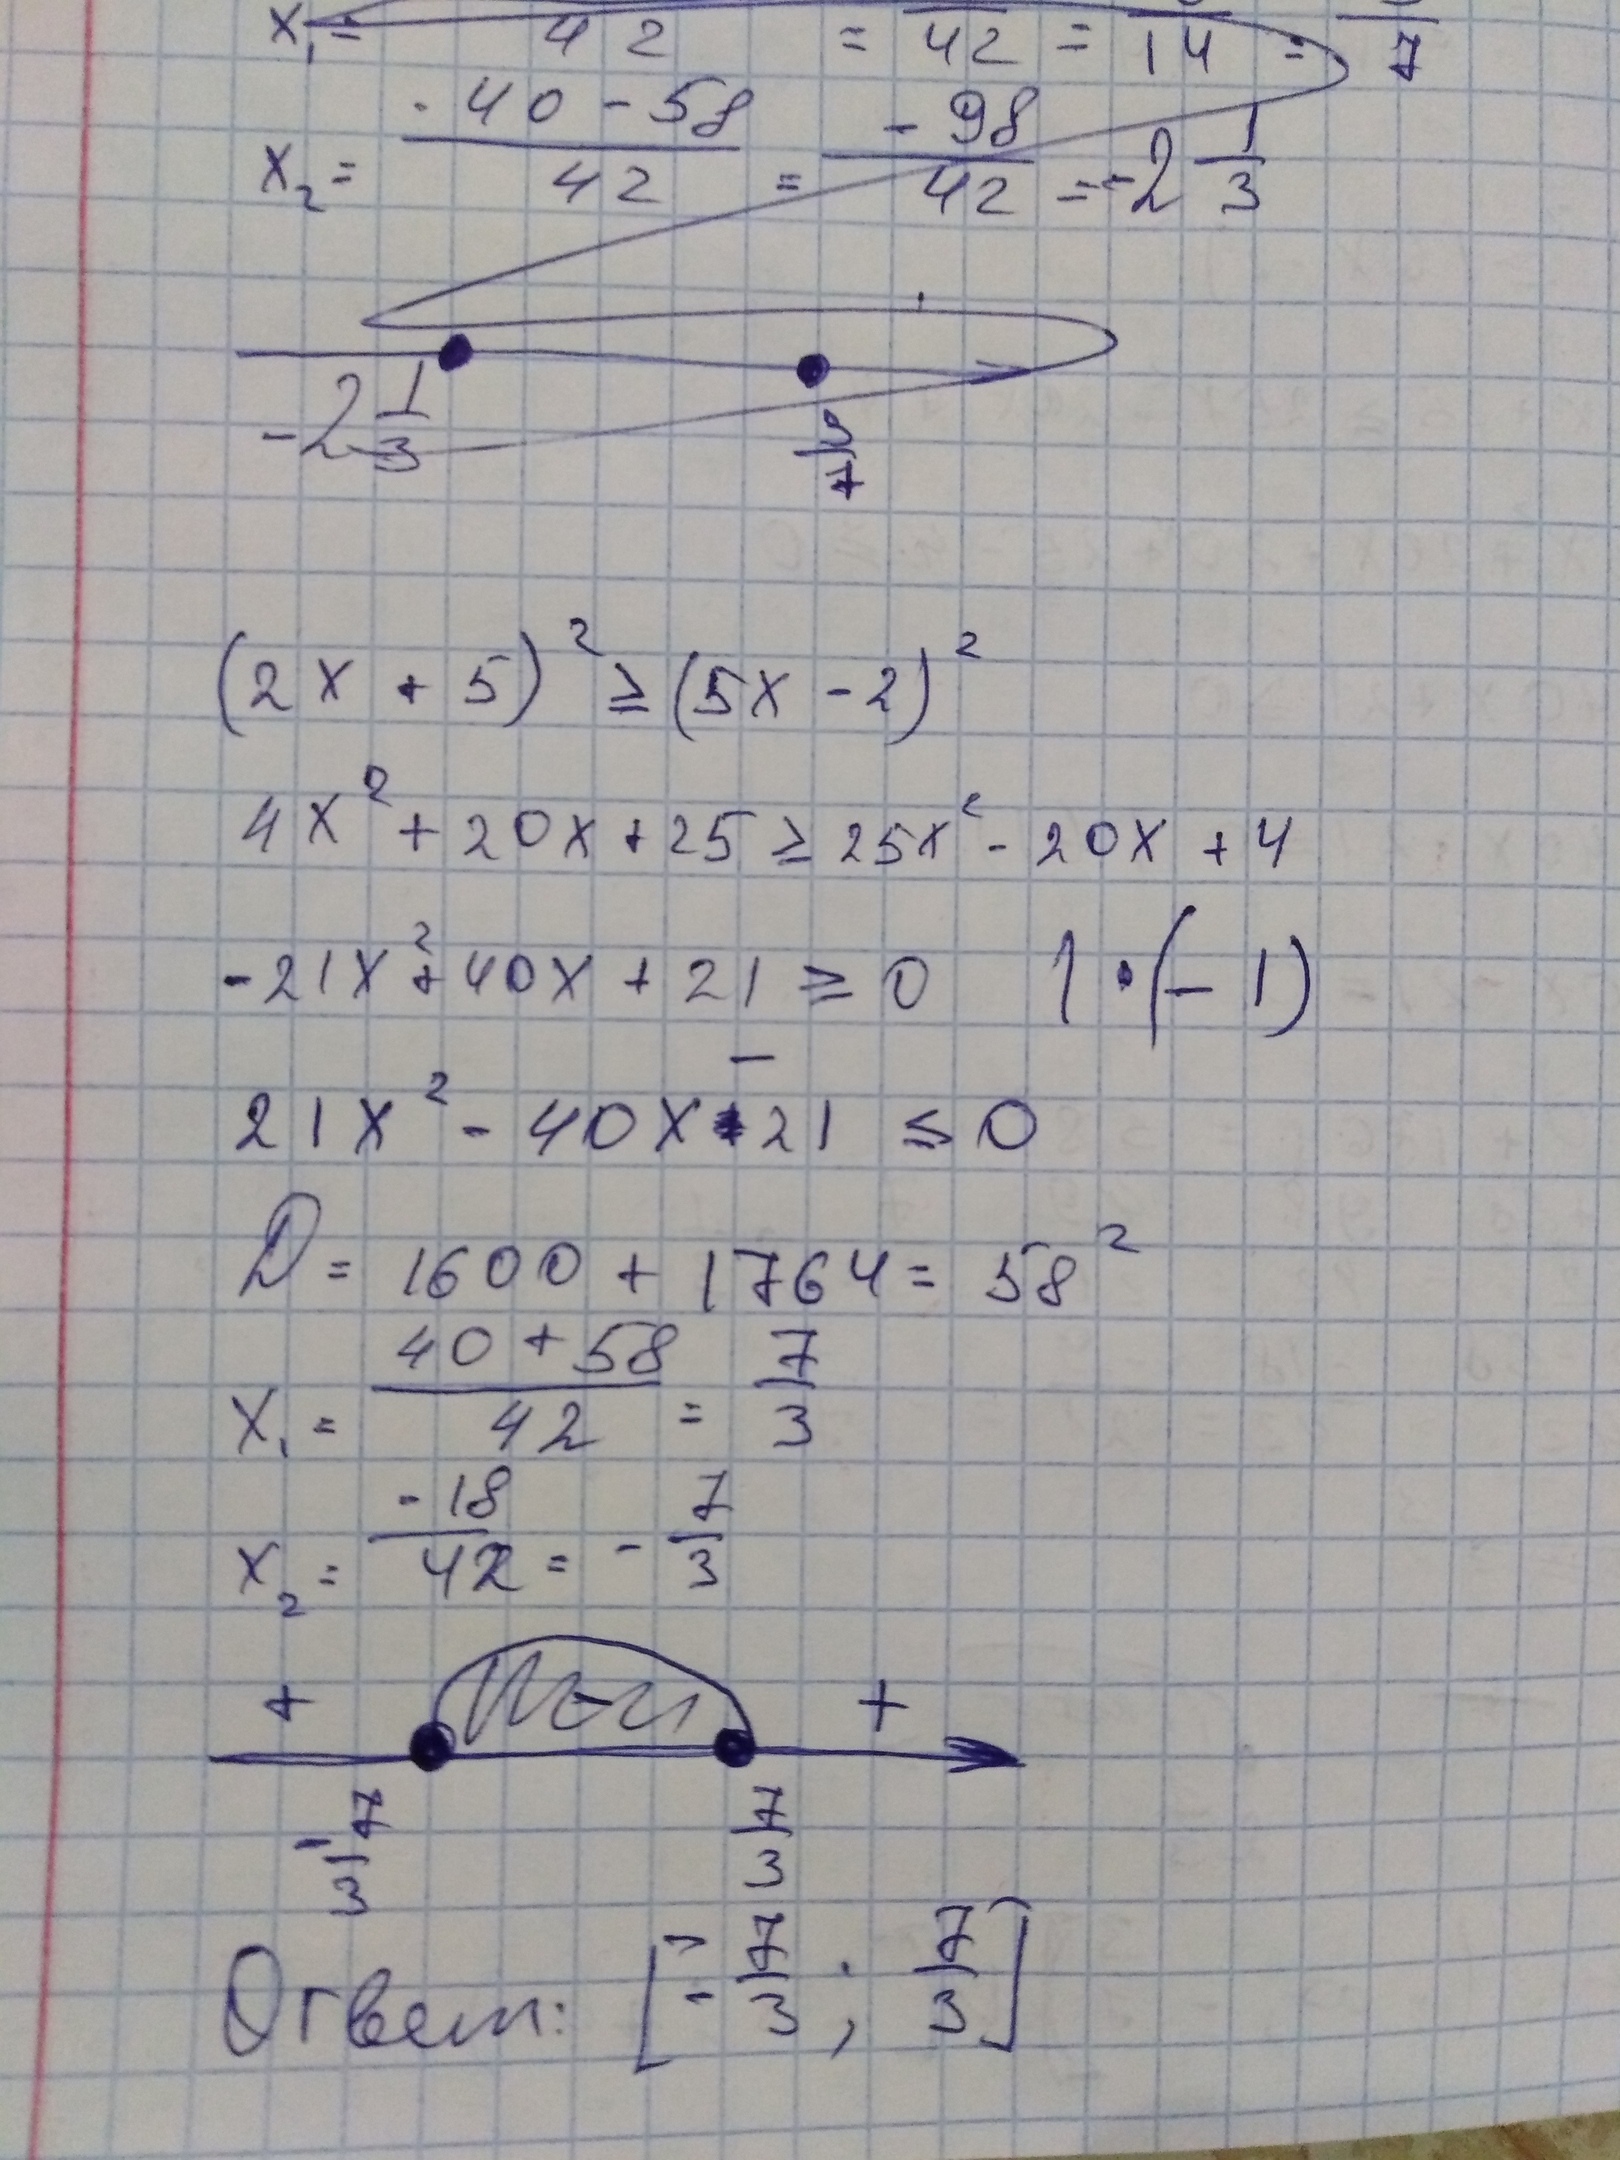 x₁ = /42 = /42 = /14 = /7
x₂ = (-40 - 58)/42 = -98/42 = -2 1/3
-2 1/3
(2x + 5)² ≥ (5x - 2)²
4x² + 20x + 25 ≥ 25x² - 20x + 4
-21x² + 40x + 21 ≥ 0 | · (-1)
21x² - 40x - 21 ≤ 0
D = 1600 + 1764 = 58²
x₁ = (40 + 58)/42 = 7/3
x₂ = -18/42 = - 7/3
+ - +
- 7/3 7/3
Ответ: [- 7/3 ; 7/3]